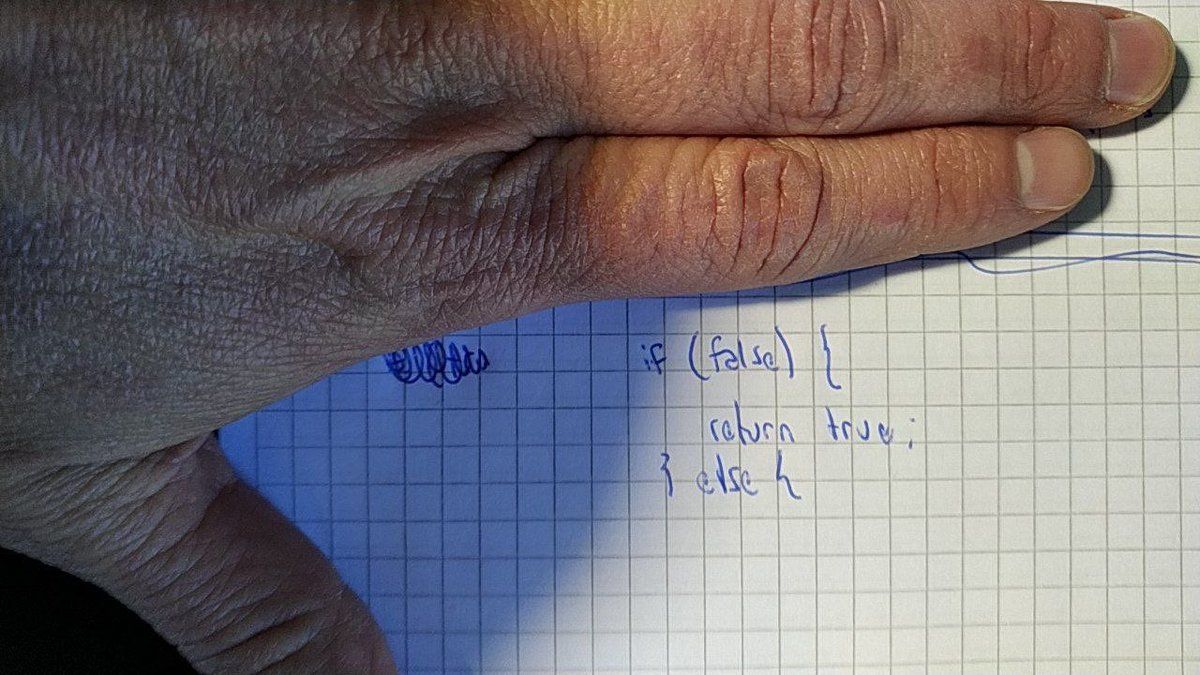 if (false) {
return true;
} else {